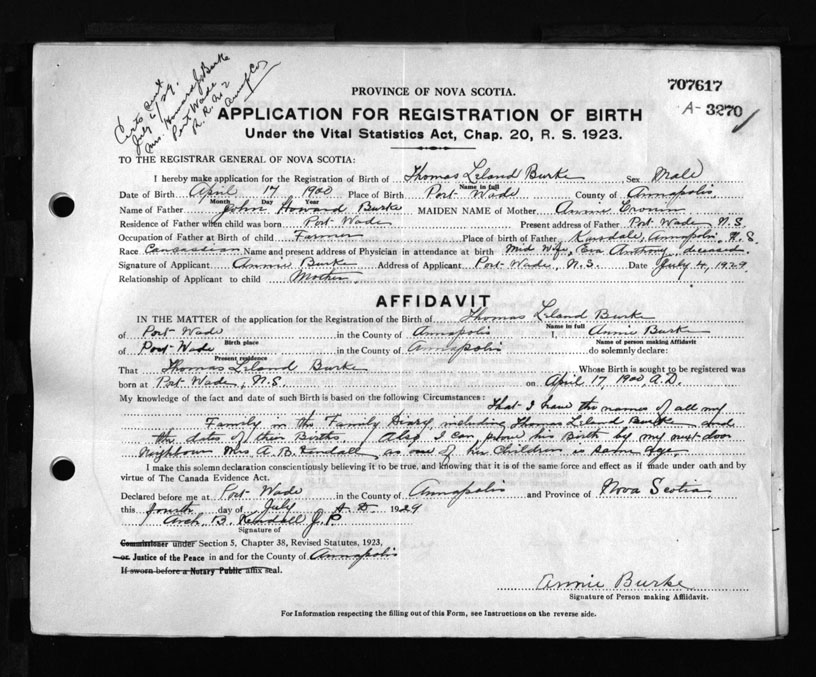 Certs sent
July 6/29.
Mrs. Howard J Burke
Port Wade
R.R. No 2
Anna Co
707617
A- 3270
PROVINCE OF NOVA SCOTIA.
APPLICATION FOR REGISTRATION OF BIRTH
Under the Vital Statistics Act, Chap. 20, R. S. 1923.
TO THE REGISTRAR GENERAL OF NOVA SCOTIA:
I hereby make application for the Registration of Birth of Thomas Leland Burke Sex Male
Name in full
Date of Birth April 17 1900 Place of Birth Port Wade County of Annapolis
Month Day Year
Name of Father John Howard Burke MAIDEN NAME of Mother Annie Cronin
Residence of Father when child was born Port Wade Present address of Father Port Wade N.S.
Occupation of Father at Birth of child Farmer Place of birth of Father Karsdale, Annapolis, N.S.
Race Caucassian Name and present address of Physician in attendance at birth Mid Wife, Eva Anthony, deceased.
Signature of Applicant Annie Burke Address of Applicant Port Wade, N.S. Date July 4, 1929
Relationship of Applicant to child Mother
AFFIDAVIT
IN THE MATTER of the application for the Registration of the Birth of Thomas Leland Burke
Name in full
of Port Wade in the County of Annapolis I, Annie Burke
Birth place Name of person making Affidavit
of Port Wade in the County of Annapolis do solemnly declare:
Present residence
That Thomas Leland Burke Whose Birth is sought to be registered was
born at Port Wade, N.S. on April 17, 1900 A.D.
My knowledge of the fact and date of such Birth is based on the following Circumstances: That I have the names of all my
Family in the Family Diary, including Thomas Leland Burke and
the dates of their Births. Also I can prove his Birth by my next door
Neighbour Mrs A. B. Kendall as one of her Children is same Age.
I make this solemn declaration conscientiously believing it to be true, and knowing that it is of the same force and effect as if made under oath and by
virtue of The Canada Evidence Act.
Declared before me at Port Wade in the County of Annapolis and Province of Nova Scotia
this fourth day of July A.D. 1929
Arch. B. Kendall J.P
Signature of
Commissioner under Section 5, Chapter 38, Revised Statutes, 1923,
or Justice of the Peace in and for the County of Annapolis
If sworn before a Notary Public affix seal.
Annie Burke
Signature of Person making Affidavit.
For Information respecting the filling out of this Form, see Instructions on the reverse side.